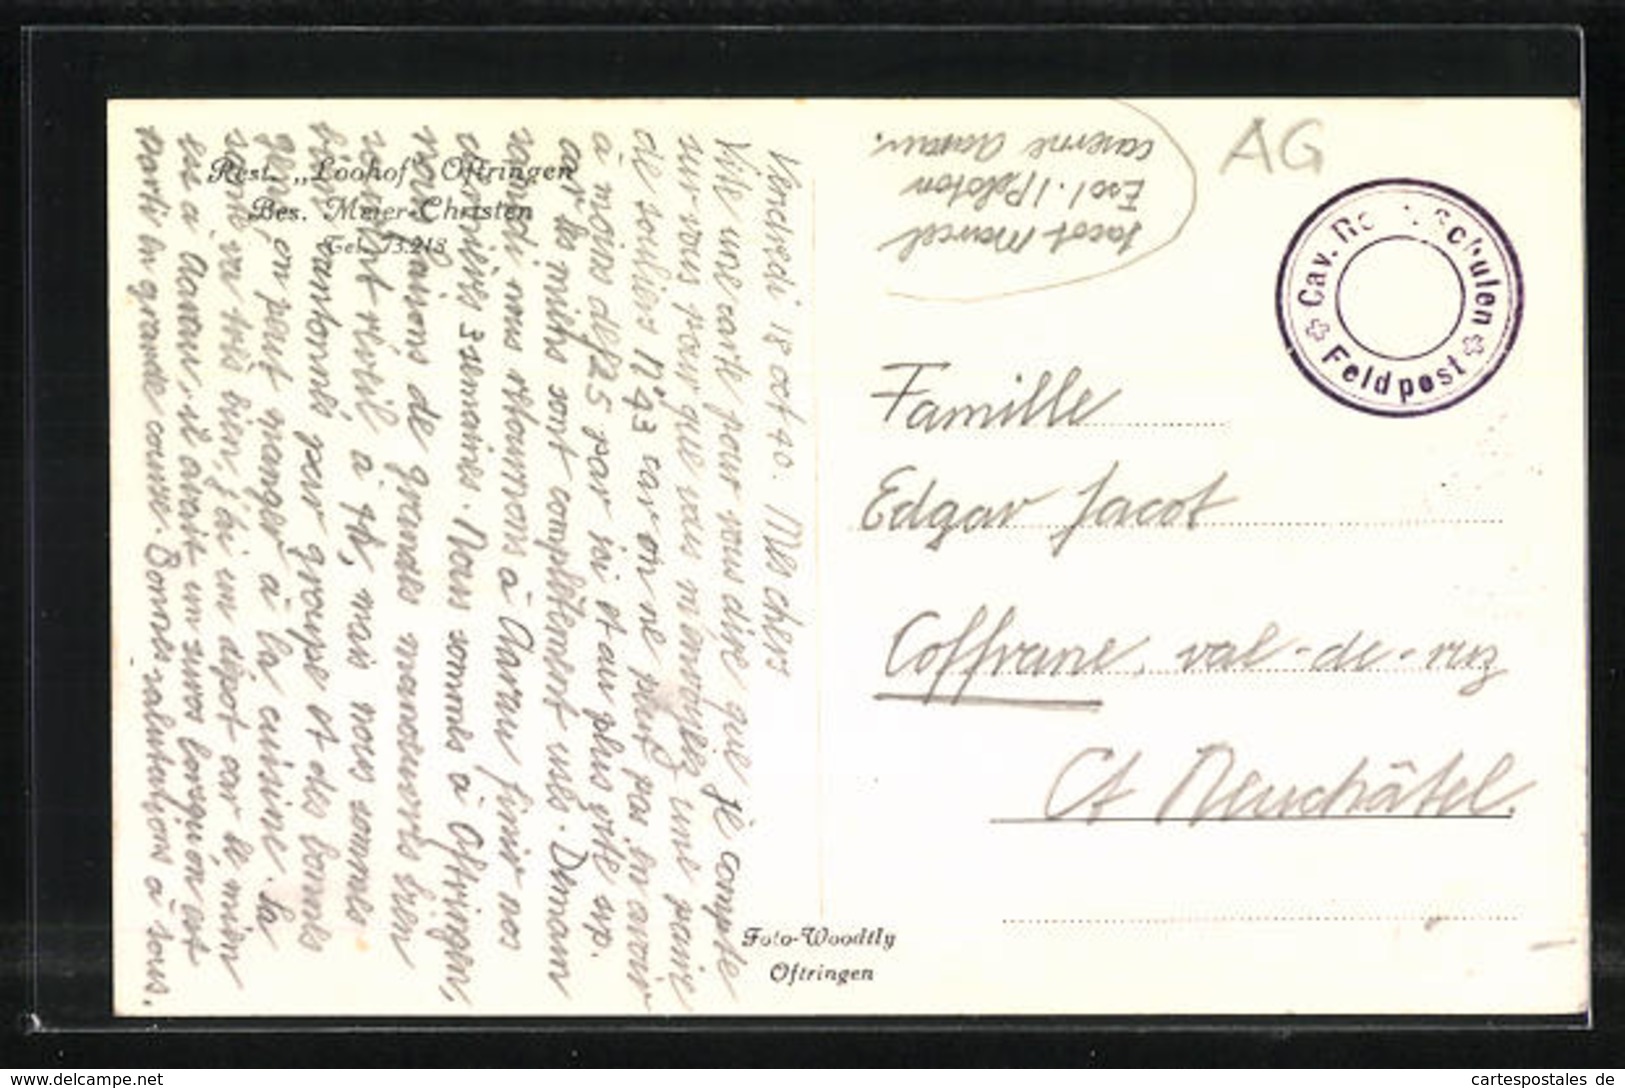 Rest. „Loohof" Oftringen
Bes. Meier-Christen
Tel. 73.218
Vendredi 18 oct 40. Mes chers
Vite une carte pour vous dire que je compte
sur vous pour que vous m'envoyiez une paire
de souliers N° 43 car on ne peut pas en avoir
à moins de fr 25 par ici et au plus vite svp.
car les miens sont complètement usés. Demain
samedi nous retournons à Aarau finir nos
dernières 3 semaines. Nous sommes à Oftringen,
nous faisons de grandes manoeuvres bien
souvent réveil à mais nous sommes
bien cantonnés pour groupe et des bonnes
gens on peut manger à la cuisine. La
santé va très bien, j'ai un dépot car le mien
est à Aarau, il avait un suros lorsqu'on est
parti en grande course. Bonnes salutations à tous.
Foto-Woodtly
Oftringen
Jacot Marcel
Esc 1. 1 Peloton
caserne Aarau.
AG
Cav. Schulen
Feldpost
Famille
Edgar Jacot
Coffrane, val-de-ruz
Ct Neuchâtel.
cartes-postales-delcampe
cartespostales de